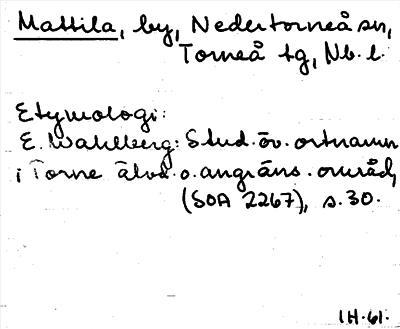 Mattila, by, Nedertorneå sn,
Torneå tg, Nb. l.
Etymologi:
E. Wahlberg: Stud. öv. ortnamn
i Torne älvd. o. angräns. områd,
(SOA 2267), s. 30.
IH. 61.